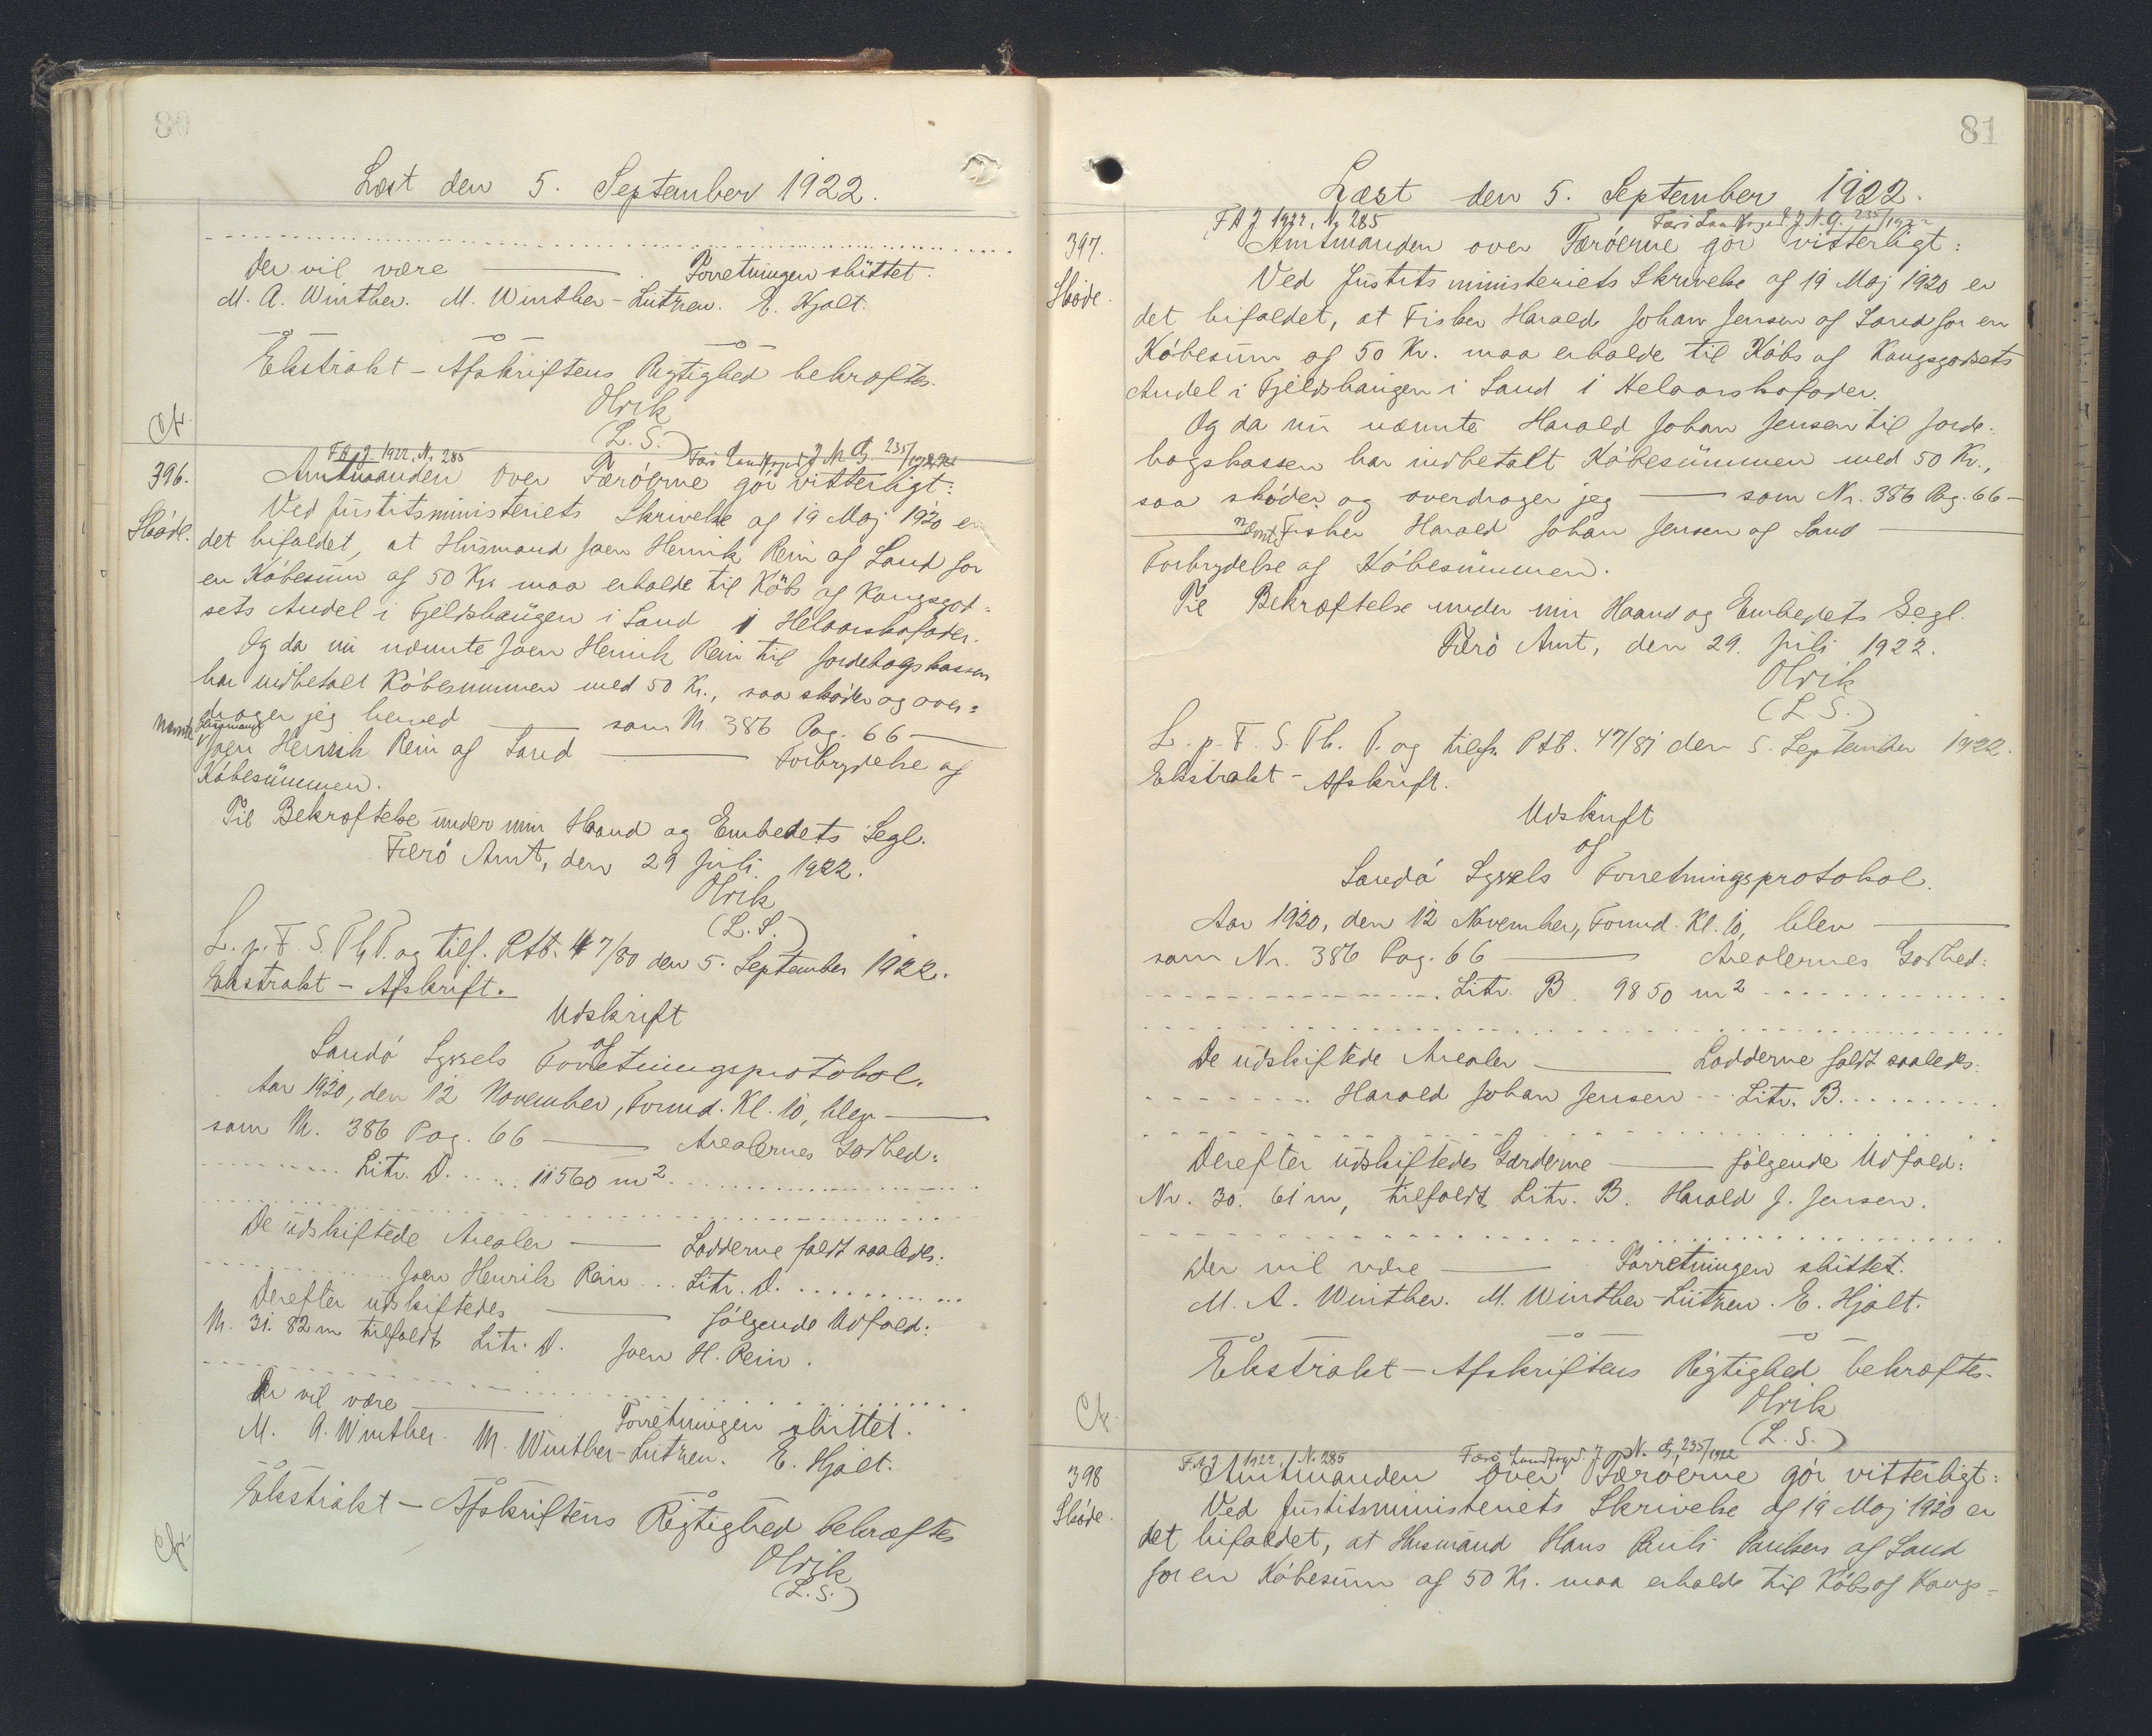 80
Læst den 5. September 1922.
Der vil være Forretningen sluttet.
M. A. Winther. M. Winther-Lützen. E. Hjalt.
Ekstrakt-Afskriftens Rigtighed bekræftes.
Olrik
(L. S.)
396. F A J 1922, Nr. 285 Færø Landfoged J. Nr. G. 235/1922
Amtmanden over Færöerne gör vitterligt:
Skøde. Ved Justitsministeriets Skrivelse af 19 Maj 1920 er
det bifaldet, at Husmand Joen Henrik Rein af Sand for
en Köbesum af 50 Kr. maa erholde til Köbs af Kongsgod-
sets Andel i Fjeldshaugen i Sand i Helaarskofoder.
Og da nu nævnte Joen Henrik Rein til Jordebogskassen
har indbetalt Köbesummen med 50 Kr., saa skøder og over-
drager jeg herved som Nr. 386 Pag. 66
nævnte Husmand Joen Henrik Rein af Sand Forbrydelse af
Köbesummen.
Til Bekræftelse under min Haand og Embedets Segl.
Færö Amt, den 29 Juli 1922.
Olrik
(L. S.)
L. p. F. S. Th. T. og tilf. Ptb. 47/80 den 5. September 1922.
Ekstrakt-Afskrift.
Udskrift
af
Sandö Syssels Forretningsprotokol.
Aar 1920, den 12 November, Formd. Kl. 10, blev
som Nr. 386 Pag. 66 Arealernes Godhed:
Litr. D. 11560 m2
De udskiftede Arealer Lodderne faldt saaledes:
Joen Henrik Rein Litr. D.
Derefter udskiftedes følgende Udfald:
Nr. 31. 82 m tilfaldt Litr. D. Joen H. Rein.
Der vil være Forretningen sluttet.
M. A. Winther. M. Winther-Lützen. E. Hjalt.
Ekstrakt-Afskriftens Rigtighed bekræftes
Olrik
(L. S.)
81
Læst den 5. September 1922.
F A J 1922, Nr. 285 Færö Landfoged J. N. G. 235/1922
397. Amtmanden over Færöerne gör vitterligt:
Skøde. Ved Justitsministeriets Skrivelse af 19 Maj 1920 er
det bifaldet, at Fisker Harald Johan Jensen af Sand for en
Köbesum af 50 Kr. maa erholde til Köbs af Kongsgodsets
Andel i Fjeldshaugen i Sand i Helaarskofoder.
Og da nu nævnte Harald Johan Jensen til Jorde-
bogskassen har indbetalt Köbesummen med 50 Kr.,
saa skøder og overdrager jeg som Nr. 386 Pag. 66
nævnte Fisker Harald Johan Jensen af Sand
Forbrydelse af Köbesummen.
Til Bekræftelse under min Haand og Embedets Segl.
Færö Amt, den 29. Juli 1922.
Olrik
(L. S.)
L. p. F. S. Th. T. og tilf. Ptb. 47/81 den 5. September 1922.
Ekstrakt-Afskrift.
Udskrift
af
Sandö Syssels Forretningsprotokol.
Aar 1920, den 12 November, Formd. Kl. 10, blev
som Nr. 386 Pag. 66 Arealernes Godhed:
Litr. B. 9850 m2
De udskiftede Arealer Lodderne faldt saaledes:
Harald Johan Jensen Litr. B.
Derefter udskiftedes Gærderne følgende Udfald:
Nr. 30. 61 m, tilfaldt Litr. B. Harald J. Jensen.
Der vil være Forretningen sluttet.
M. A. Winther. M. Winther-Lützen. E. Hjalt.
Ekstrakt-Afskriftens Rigtighed bekræftes.
Olrik
(L. S.)
F A J 1922, Nr. 285 Færö Landfoged. J. N. G. 235/1922
398 Amtmanden over Færöerne gör vitterligt:
Skøde. Ved Justitsministeriets Skrivelse af 19 Maj 1920 er
det bifaldet, at Husmand Hans Pauli Paulsen af Sand
for en Köbesum af 50 Kr. maa erholde til Köbs af Kongs-